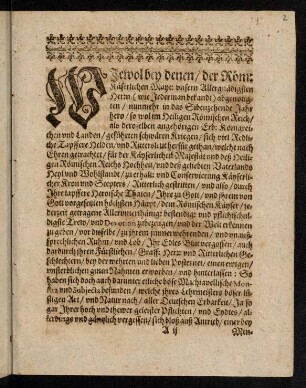 WIewol bey denen / der Röm:
Käyserlichen Mayt: unsern Allergnädigsten
Herrn / (wie Jederman bekandt) abgenötig-
ten / nunmehr in das Siebenzehende Jahr
hero / so wol im Heiligen Römischen Reich /
als dero selben angehörigen Erb: Königrei-
chen und Landen / geführten schwären Kriegen / sich viel Redli-
che Tapffere Helden / und Ritersleut herfür gethan / welche nach
Ehren getrachtet / für der Käyserlich: Mayestät und deß Hei-
ligen Römischen Reichs Hochheit / und deß geliebten Vaterlands
Heyl und Wohlstandt / zu erhalt: und Conservierung Käyserli-
cher Kron und Scepters / Ritterlich gestritten / und also / durch
Ihre tapffere Heroische Thaten / Ihre zu Gott / und ihrem von
Gott vorgesetzten höchsten Häupt / dem Römischen Käyser / je-
derzeit getragene Allerunterthänigst beständige und pflichtschul-
digste Trew / und Devotion bezeuget / und der Welt erkennen
zu geben / vor dieselbe / zu ihrem immerwehrenden / und unauß-
sprechlichen Ruhm / und Lob / Ihr Edles Blut vergossen / auch
dardurch ihren Fürstlichen / Gräff: Herrn und Ritterlichen Ge-
schlechtern / bey der mehrern und lieben Posteritet / einen ewigen /
unsterblichen guten Nahmen erworben / und hinterlassen: So
haben sich doch auch darunter etliche böse Machiavellische Mon-
stra und Subjecta befunden / welche ihres Lehrmeisters böser li-
stigen Art / und Natur nach / aller Deutschen Erbarkeit / Ja so
gar Ihrer hoch und thewer geleister Pflichten / und Eydes / al-
lerdings und gäntzlich vergessen / sich bloß auß Antrieb / einer bey
A ij
Men-